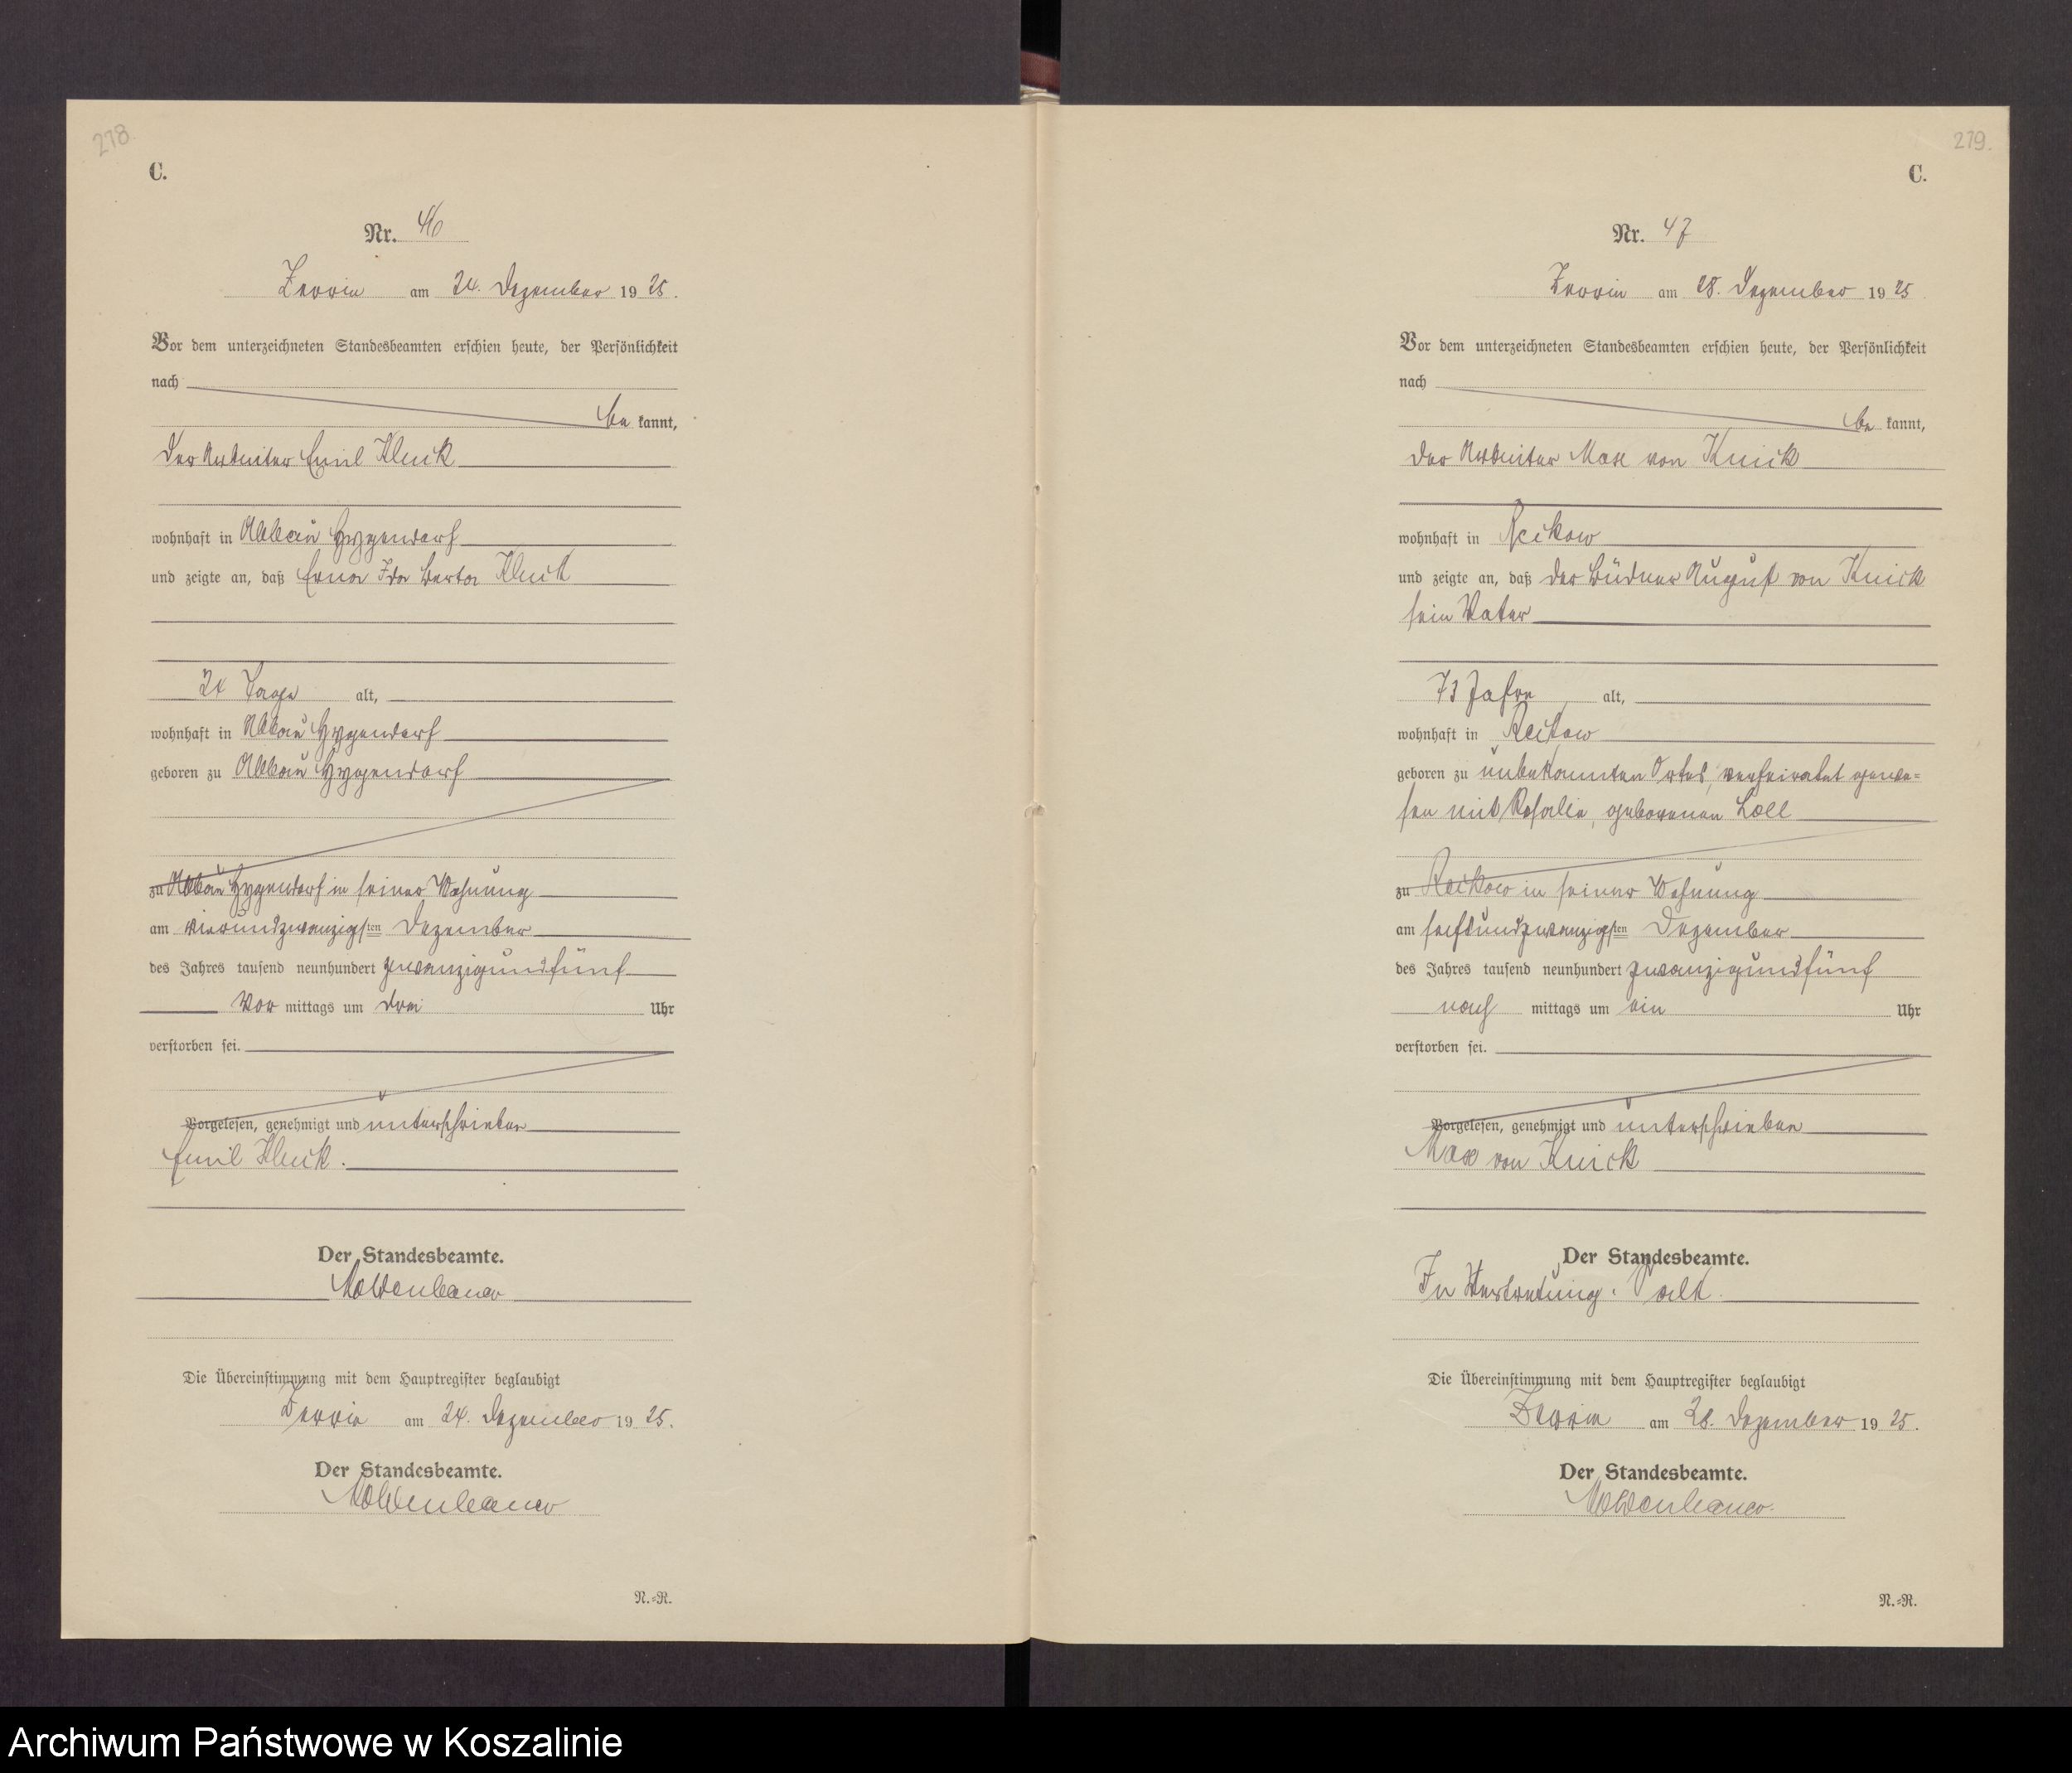 278.
C.
Nr. 46
Zerrin am 24. Dezember 1925.
Vor dem unterzeichneten Standesbeamten erschien heute, der Persönlichkeit
nach
be kannt,
der Arbeiter Emil Kluck
wohnhaft in Abbau Hygendorf
und zeigte an, daß Erna Ida Berta Kluck
24 Tage alt,
wohnhaft in Abbau Hygendorf
geboren zu Abbau Hygendorf
zu Abbau Hygendorf in seiner Wohnung
am vierundzwanzigsten Dezember
des Jahres tausend neunhundert zwanzigundfünf
Vor mittags um drei Uhr
verstorben sei.
Vorgelesen, genehmigt und unterschrieben
Emil Kluck.
Der Standesbeamte.
Moldenhauer
Die Übereinstimmung mit dem Hauptregister beglaubigt
Zerrin am 24. Dezember 1925.
Der Standesbeamte.
Moldenhauer
N.=R.
279.
C.
Nr. 47
Zerrin am 28. Dezember 1925
Vor dem unterzeichneten Standesbeamten erschien heute, der Persönlichkeit
nach
be kannt,
der Arbeiter Max von Kuick
wohnhaft in Reckow
und zeigte an, daß der Büdner August von Kuick
sein Vater
73 Jahre alt,
wohnhaft in Reckow
geboren zu unbekannten Ortes, verheiratet gewe=
sen mit Rosalie, geborenen Loll
zu Reckow in seiner Wohnung
am sechsundzwanzigsten Dezember
des Jahres tausend neunhundert zwanzigundfünf
nach mittags um ein Uhr
verstorben sei.
Vorgelesen, genehmigt und unterschrieben
Max von Kuick
Der Standesbeamte.
In Vertretung.
Die Übereinstimmung mit dem Hauptregister beglaubigt
Zerrin am 28. Dezember 1925.
Der Standesbeamte.
Moldenhauer.
N.=R.
Archiwum Państwowe w Koszalinie